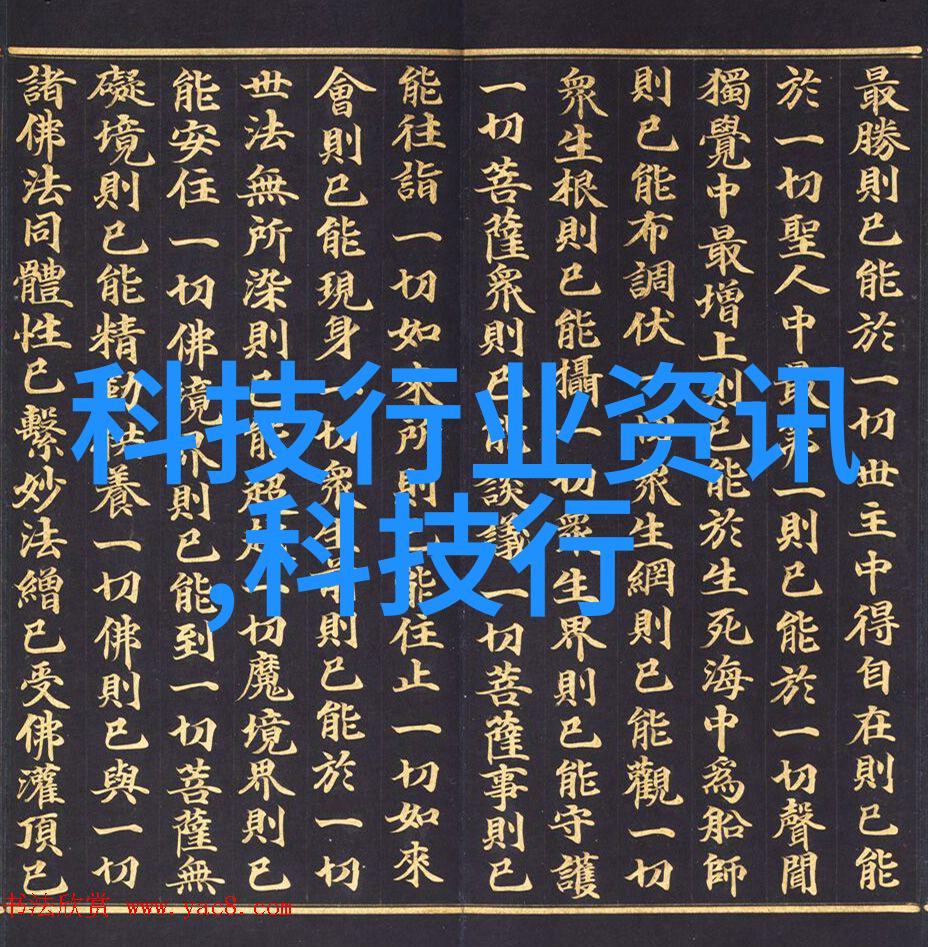 最勝則已能於一切世主中得自在則已能
於一切聖人中最第一則已能於一切聲聞
獨覺中最增上則已能於生死海中爲船師
則已能布調伏一切衆生網則已能觀一切
衆生根則已能攝一切衆生界則已能守護
一切菩薩衆則已能談議一切菩薩事則已
能往詣一切如來所則已能住止一切如來
會則已能現身一切衆生前則已能於一切
世法無所染則已能超越一切魔境界則已
能安住一切佛境界則已能到一切菩薩無
礙境則已能精勤供養一切佛則已與一切
諸佛法同體性已繫妙法繒已受佛灌頂已
科技行业资讯
,科技行
书法欣赏 www.yac8.com